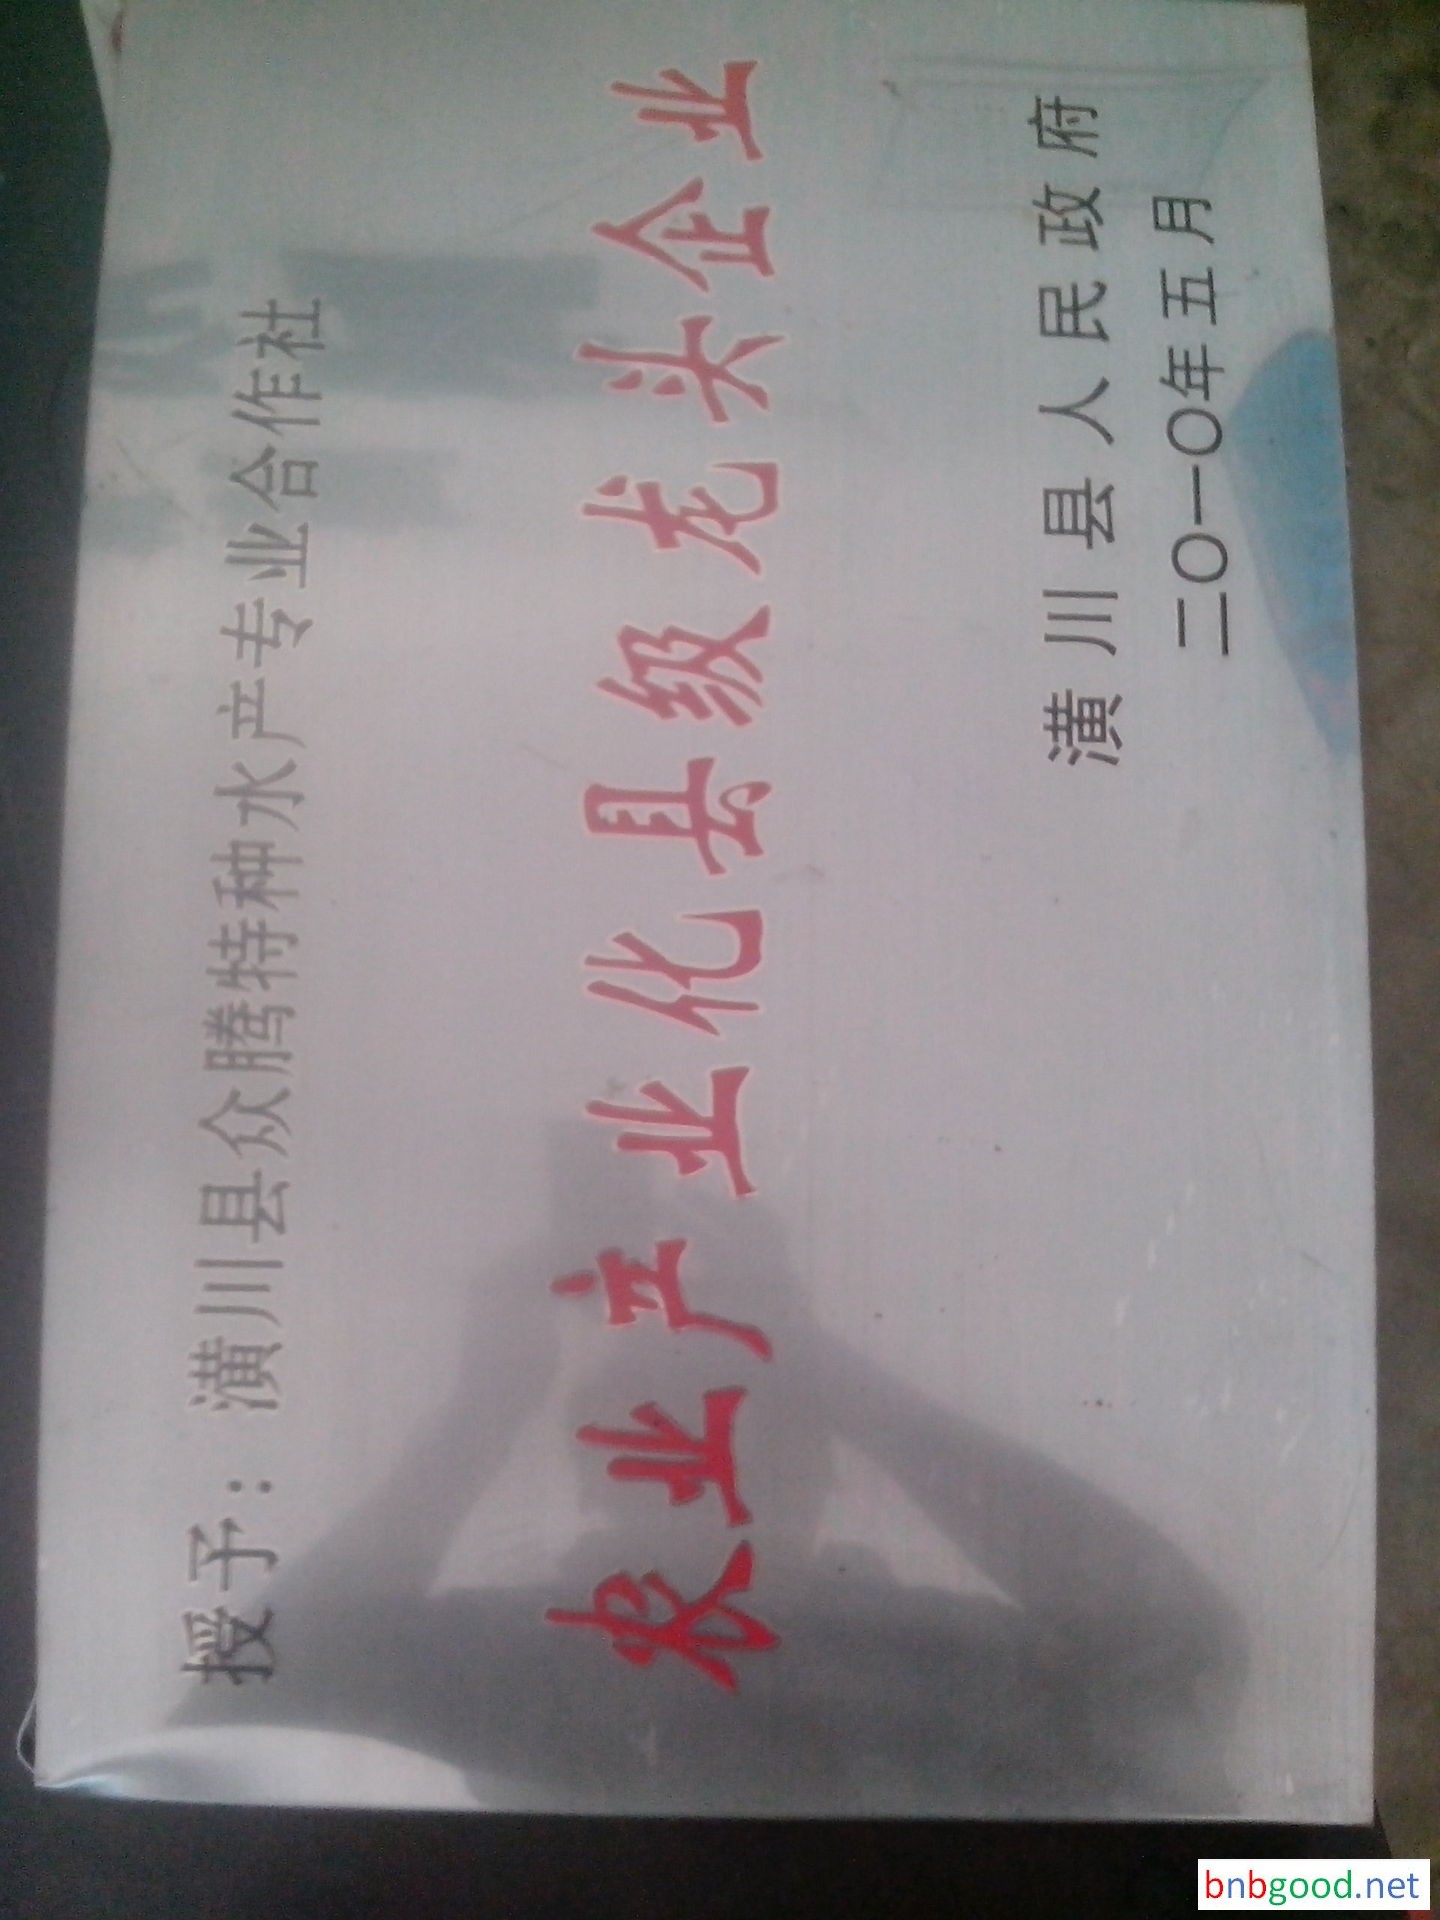 授予：潢川县众腾特种水产专业合作社
农业产业化县级龙头企业
潢川县人民政府
二〇一〇年五月
bnbgood.net